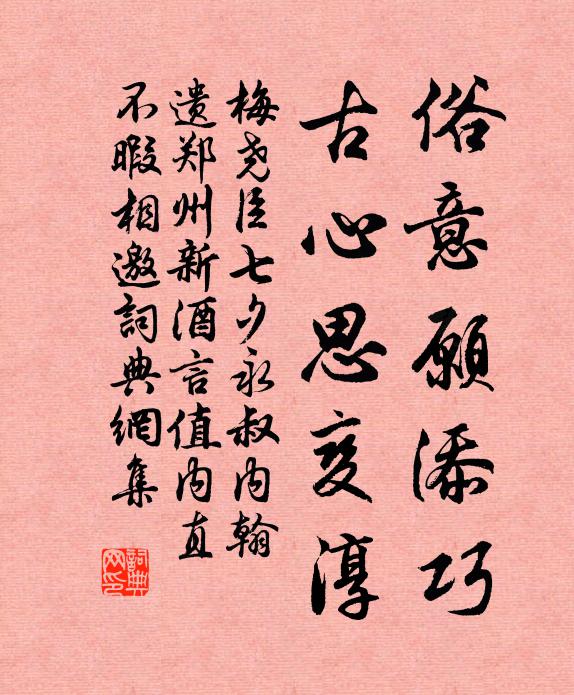 俗意愿添巧
古心思变淳
梅尧臣七夕永叔内翰
遗郑州新酒言值内直
不暇相邀詞典網集
詞典网印